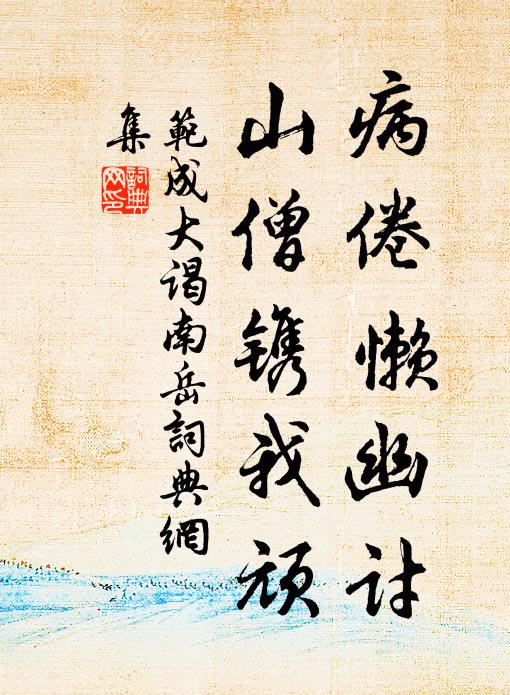 病倦懒幽讨
山僧镌我顽
範成大谒南岳詞典網
集
詞典网印